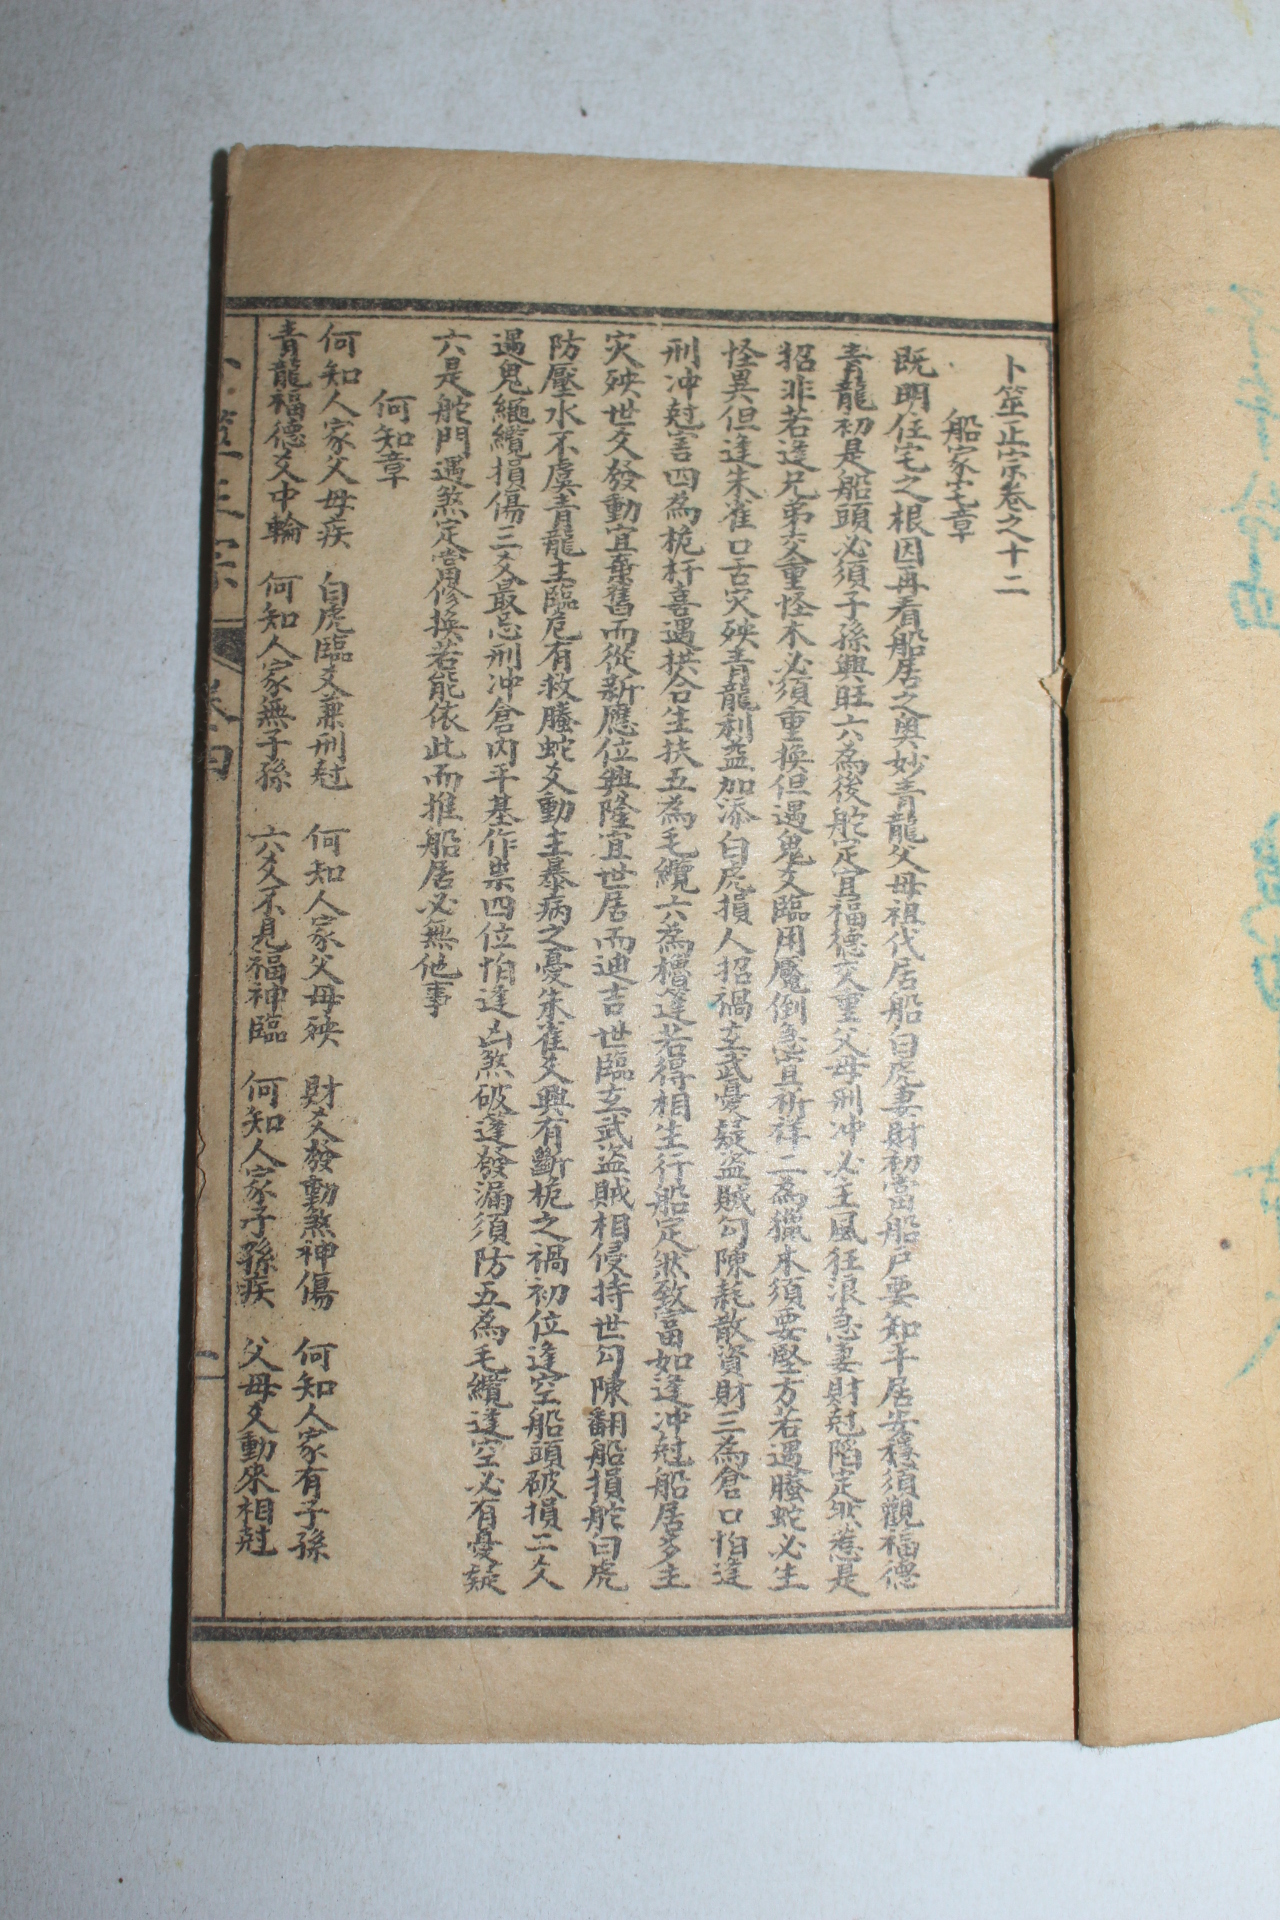 卜筮正宗卷之十二
船家宅章
既明住宅之根因再看船居之奥妙青龍父母祖代居船白虎妻財初當船戶要知平居安穩須觀福德
青龍初是船頭必須子孫興旺六為後舵定宜福德交重父母刑冲必主風狂浪急妻財尅陷定然惹是
招非若逢兄弟交重怪木必須重換但遇鬼爻臨用魘倒急宜祈祥二為獵木須要堅方若遇螣蛇必生
怪異但逢朱雀口舌灾殃青龍利益加添白虎損人招禍玄武憂疑盜賊勾陳耗散資財三為倉口怕逢
刑冲尅害四為桅杆喜遇拱合生扶五為毛纜六為櫓逢若得相生行船定然致富如逢冲尅船居多主
灾殃世爻發動宜棄舊而從新應位興隆宜世居而迪吉世臨玄武盜賊相侵持世勾陳翻船損舵白虎
防壓水不虞青龍主臨危有救螣蛇爻動主暴病之憂朱雀爻興有斷桅之禍初位逢空船頭破損二爻
遇鬼繩纜損傷三爻最忌刑冲倉內平基作祟四位怕逢凶煞破篷發漏須防五為毛纜逢空必有憂疑
六是舵門遇煞定當修換若能依此而推船居必無他事
何知章
何知人家父母疾 白虎臨爻兼刑尅 何知人家父母殃 財爻發動煞神傷 何知人家有子孫
青龍福德爻中輪 何知人家無子孫 六爻不見福神臨 何知人家子孫疾 父母爻動來相尅